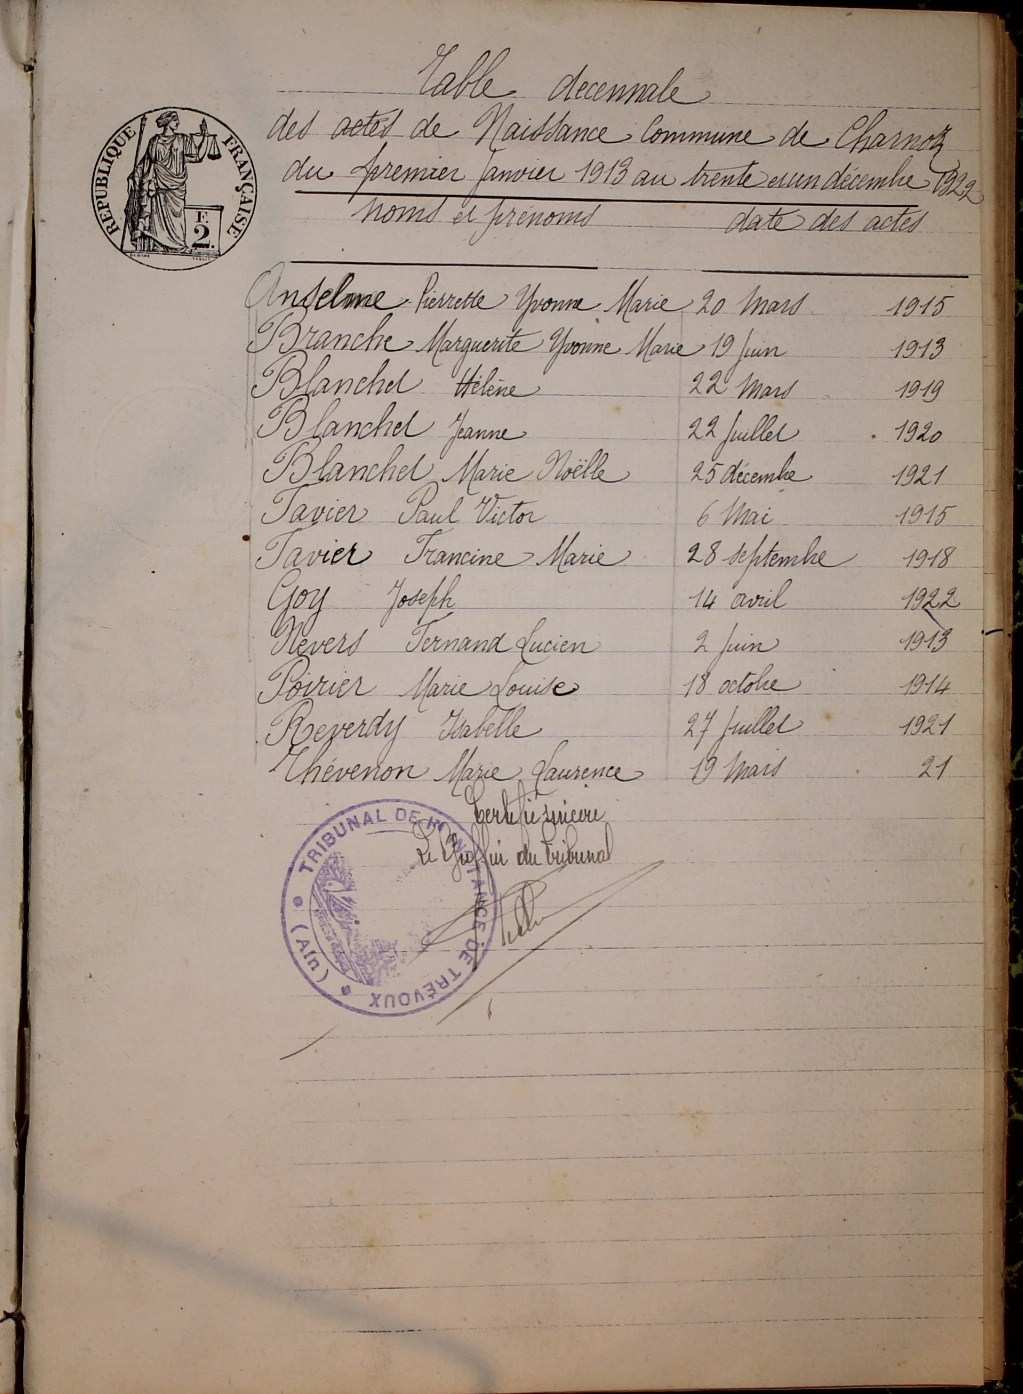 Table decennale
des actes de Naisstance Commune de Charnoz
du premier Janvier 1913 au trente et un décembre 1922
REPUBLIQUE FRANÇAISE
F.
2.
noms et prénoms date des actes
Anselme Pierrette Yvonne Marie 20 Mars 1915
Branche Marguerite Yvonne Marie 19 Juin 1913
Blanchet Hélène 22 Mars 1919
Blanchet Jeanne 22 Juillet 1920
Blanchet Marie Noëlle 25 décembre 1921
Favier Paul Victor 6 Mai 1915
Favier Francine Marie 28 septembre 1918
Goy Joseph 14 avril 1922
Nevers Fernand Lucien 2 Juin 1913
Poirier Marie Louise 18 octobre 1914
Reverdy Isabelle 27 Juillet 1921
Thévenon Marie Laurence 19 Mars 21
Certifié sincère
Le Greffier du Tribunal
TRIBUNAL DE 1re INSTANCE DE TRÉVOUX
(Ain)